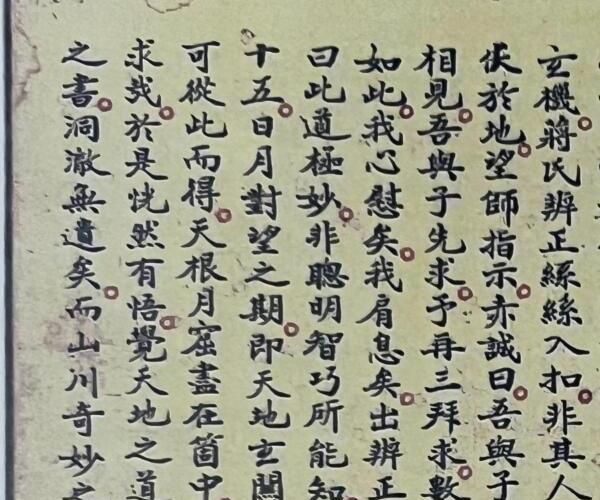 玄機蔣氏辨正絲絲入扣非其人
伏於地望師指示亦誠曰吾與子
相見吾與子先求予再三拜求數
如此我心慰矣我肩息矣出辨正
曰此道極妙非聰明智巧所能知
十五日月對望之期即天地玄關
可從此而得天根月窟盡在箇中
求哉於是恍然有悟覺天地之道
之書洞澈無遺矣而山川奇妙之